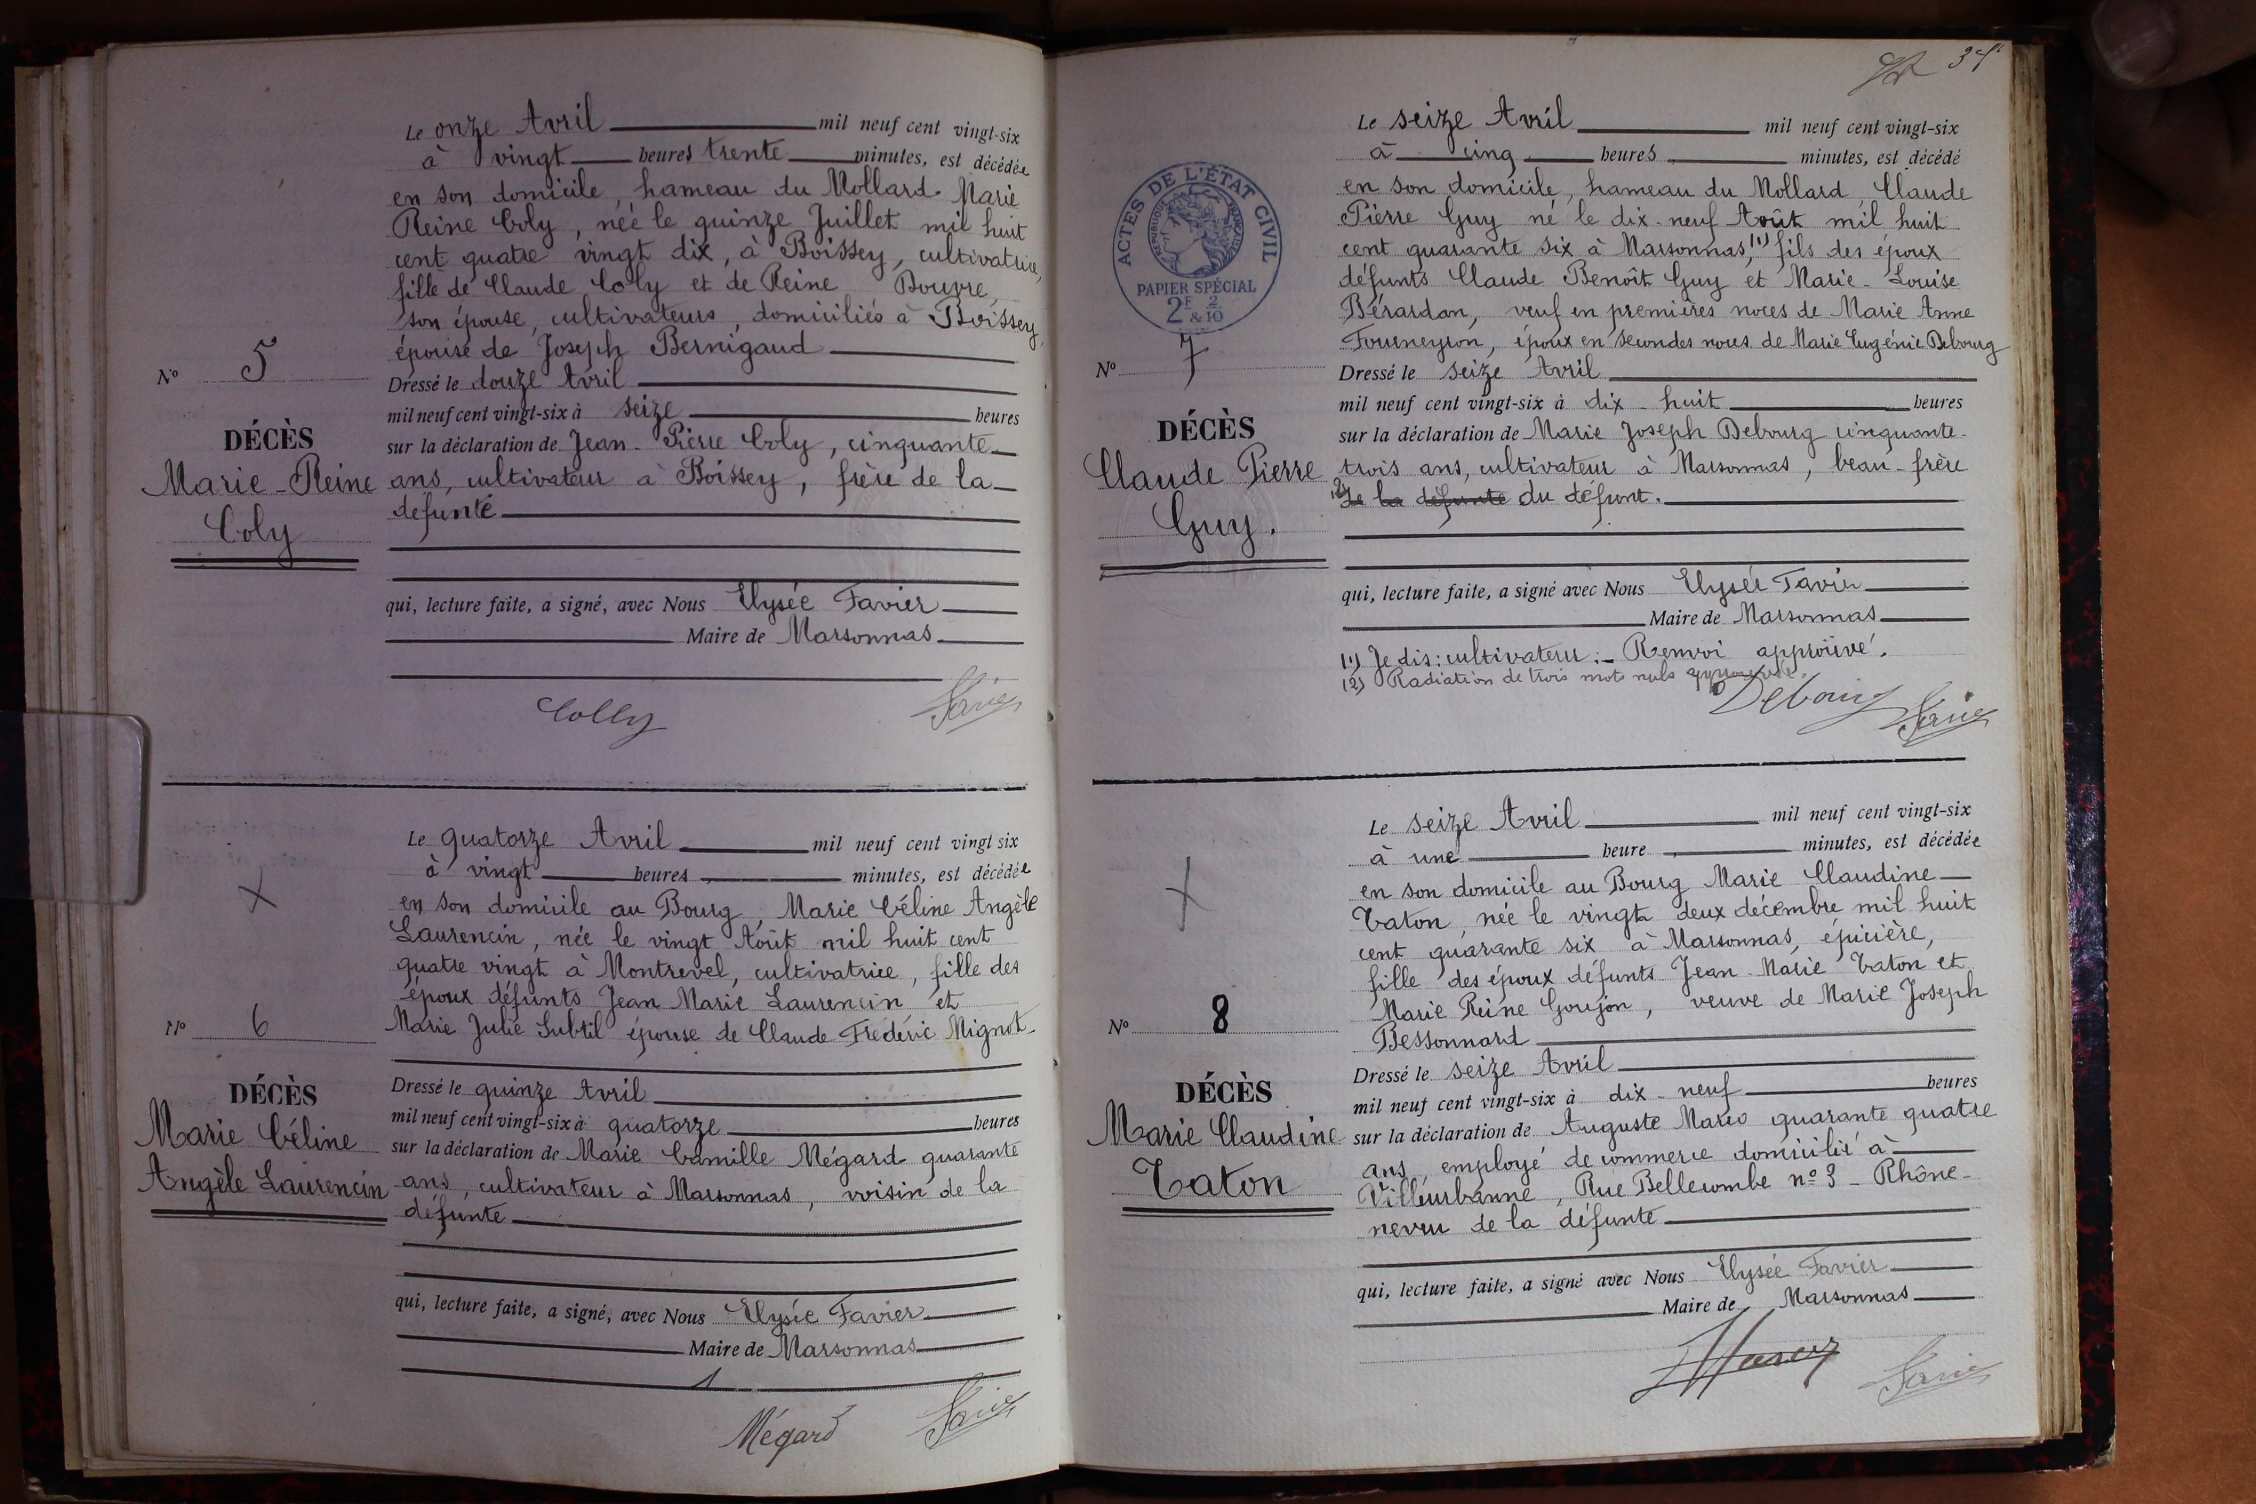 Le onze Avril mil neuf cent vingt-six
à vingt heures trente minutes, est décédée
en son domicile, hameau du Mollard Marie
Reine Coly, née le quinze Juillet mil huit
cent quatre vingt dix, à Boissey, cultivatrice,
fille de Claude Coly et de Reine Bouvre,
son épouse, cultivateurs, domiciliés à Boissey,
épouse de Joseph Bernigaud
Nº 5
Dressé le douze Avril
mil neuf cent vingt-six à seize heures
DÉCÈS
sur la déclaration de Jean-Pierre Coly, cinquante
Marie-Reine
ans, cultivateur à Boissey, frère de la
défunte
Coly
qui, lecture faite, a signé, avec Nous Elysée Favier
Maire de Marsonnas
Colly
Le quatorze Avril mil neuf cent vingt six
à vingt heures minutes, est décédée
en son domicile au Bourg, Marie Céline Angèle
Laurencin, née le vingt Août mil huit cent
quatre vingt à Montrevel, cultivatrice, fille des
époux défunts Jean Marie Laurencin et
Nº 6
Marie Julie Subtil épouse de Claude Frédéric Mignot
DÉCÈS
Dressé le quinze Avril
mil neuf cent vingt-six à quatorze heures
Marie Céline
sur la déclaration de Marie Camille Mégard quarante
Angèle Laurencin
ans, cultivateur à Marsonnas, voisin de la
défunte
qui, lecture faite, a signé, avec Nous Elysée Favier
Maire de Marsonnas
Mégard
Le seize Avril mil neuf cent vingt-six
à cinq heures minutes, est décédé
en son domicile, hameau du Mollard, Claude
Pierre Guy né le dix-neuf Août mil huit
cent quarante six à Marsonnas,(1) fils des époux
défunts Claude Benoît Guy et Marie-Louise
Bérardan, veuf en premières noces de Marie Anne
Fourneyron, époux en secondes noces de Marie Eugénie Debourg
ACTES DE L'ÉTAT CIVIL
RÉPUBLIQUE FRANÇAISE
PAPIER SPÉCIAL
2F & 2/10
Nº 7
Dressé le seize Avril
mil neuf cent vingt-six à dix-huit heures
DÉCÈS
sur la déclaration de Marie Joseph Debourg cinquante-
Claude Pierre
trois ans, cultivateur à Marsonnas, beau-frère
(2) de la défunte du défunt.
Guy.
qui, lecture faite, a signé avec Nous Elysée Favier
Maire de Marsonnas
(1) Je dis: cultivateur:- Renvoi approuvé.
(2) Radiation de trois mots nuls approuvée.
Debourg
Le seize Avril mil neuf cent vingt-six
à une heure minutes, est décédée
en son domicile au Bourg Marie Claudine
Caton, née le vingt deux décembre mil huit
cent quarante six à Marsonnas, épicière,
fille des époux défunts Jean-Marie Caton et
Marie Reine Goujon, veuve de Marie Joseph
Nº 8
Bessonnard
Dressé le seize Avril
DÉCÈS
mil neuf cent vingt-six à dix-neuf heures
Marie Claudine
sur la déclaration de Auguste quarante quatre
ans, employé de commerce domicilié à
Caton
Villeurbanne, Rue Bellecombe nº 3 - Rhône-
neveu de la défunte
qui, lecture faite, a signé avec Nous Elysée Favier
Maire de Marsonnas